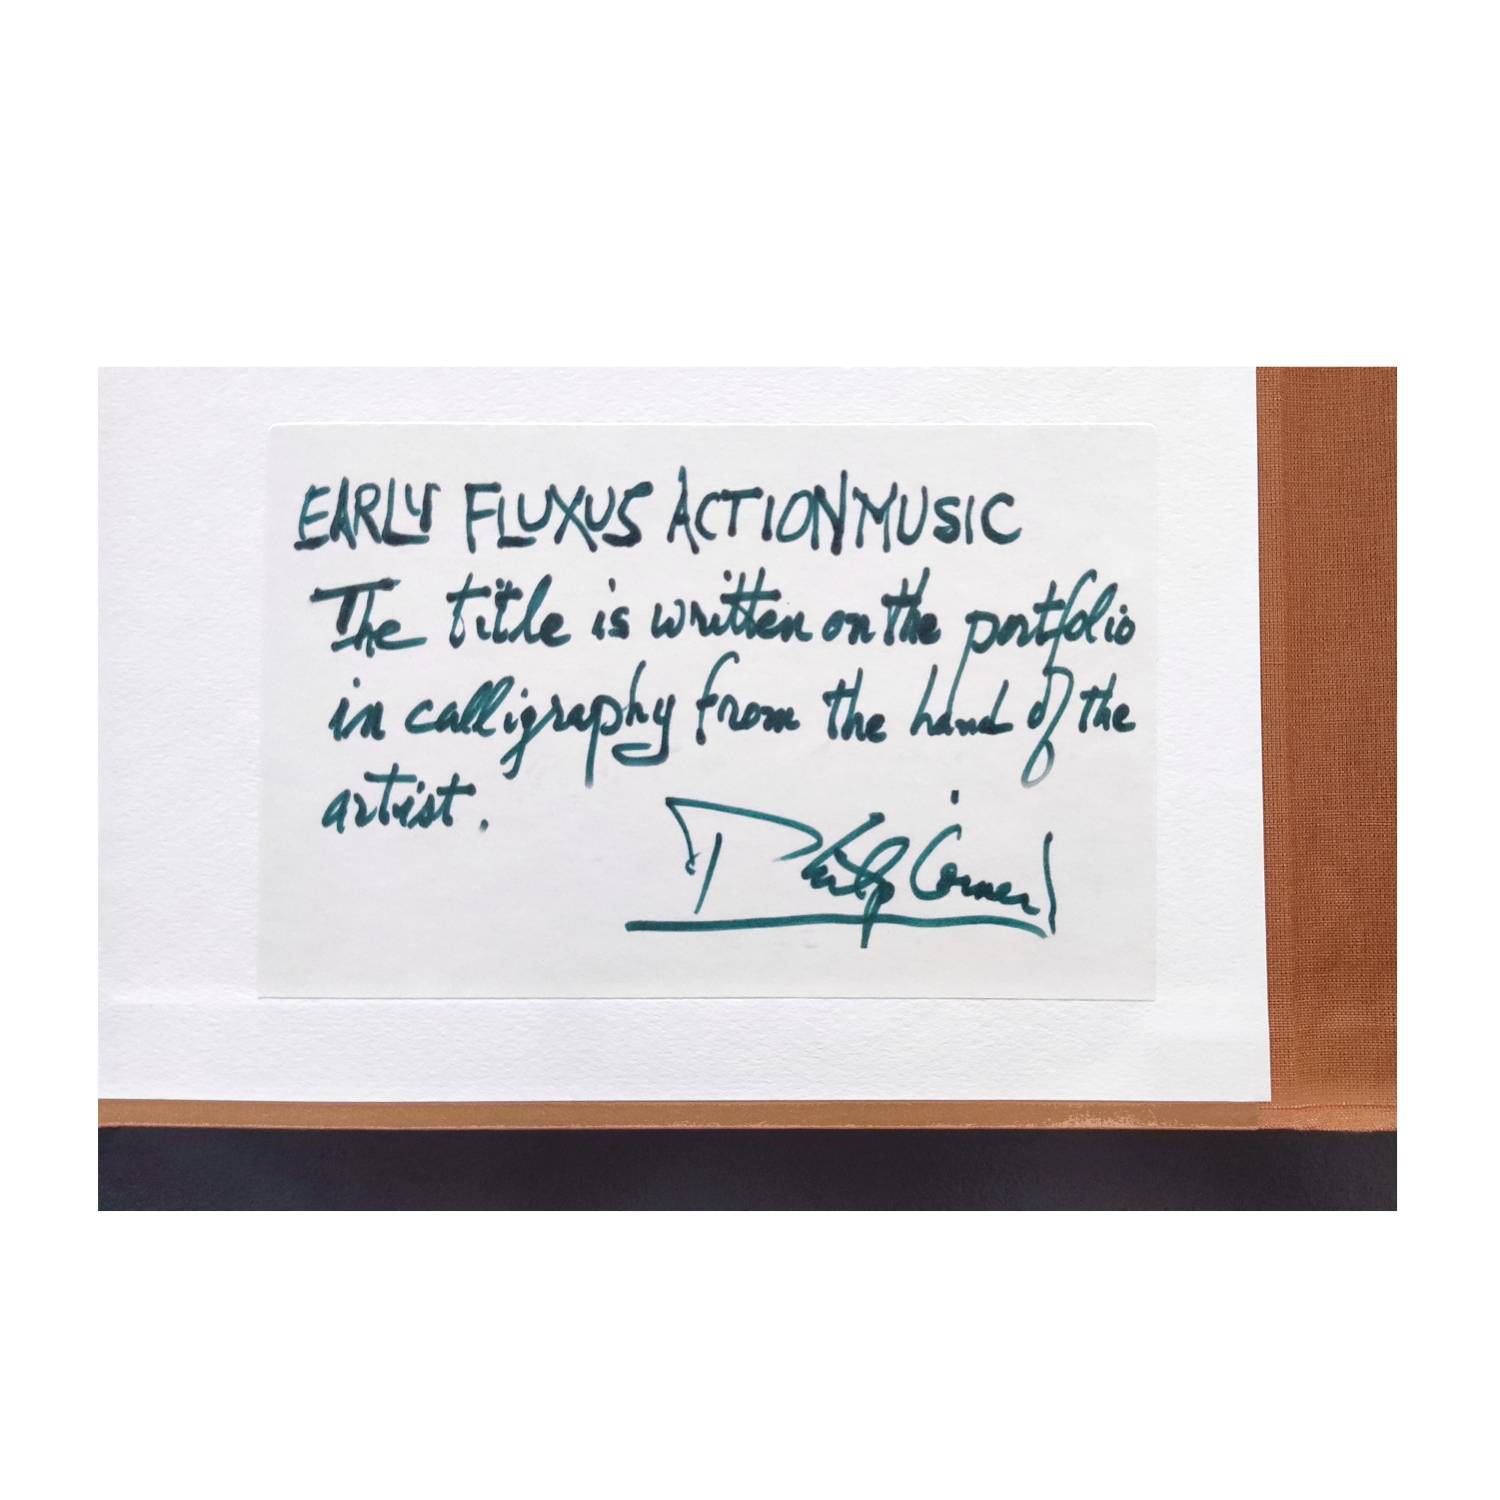 EARLY FLUXUS ACTIONMUSIC
The title is written on the portfolio
in calligraphy from the hand of the
artist.
Philip Corner